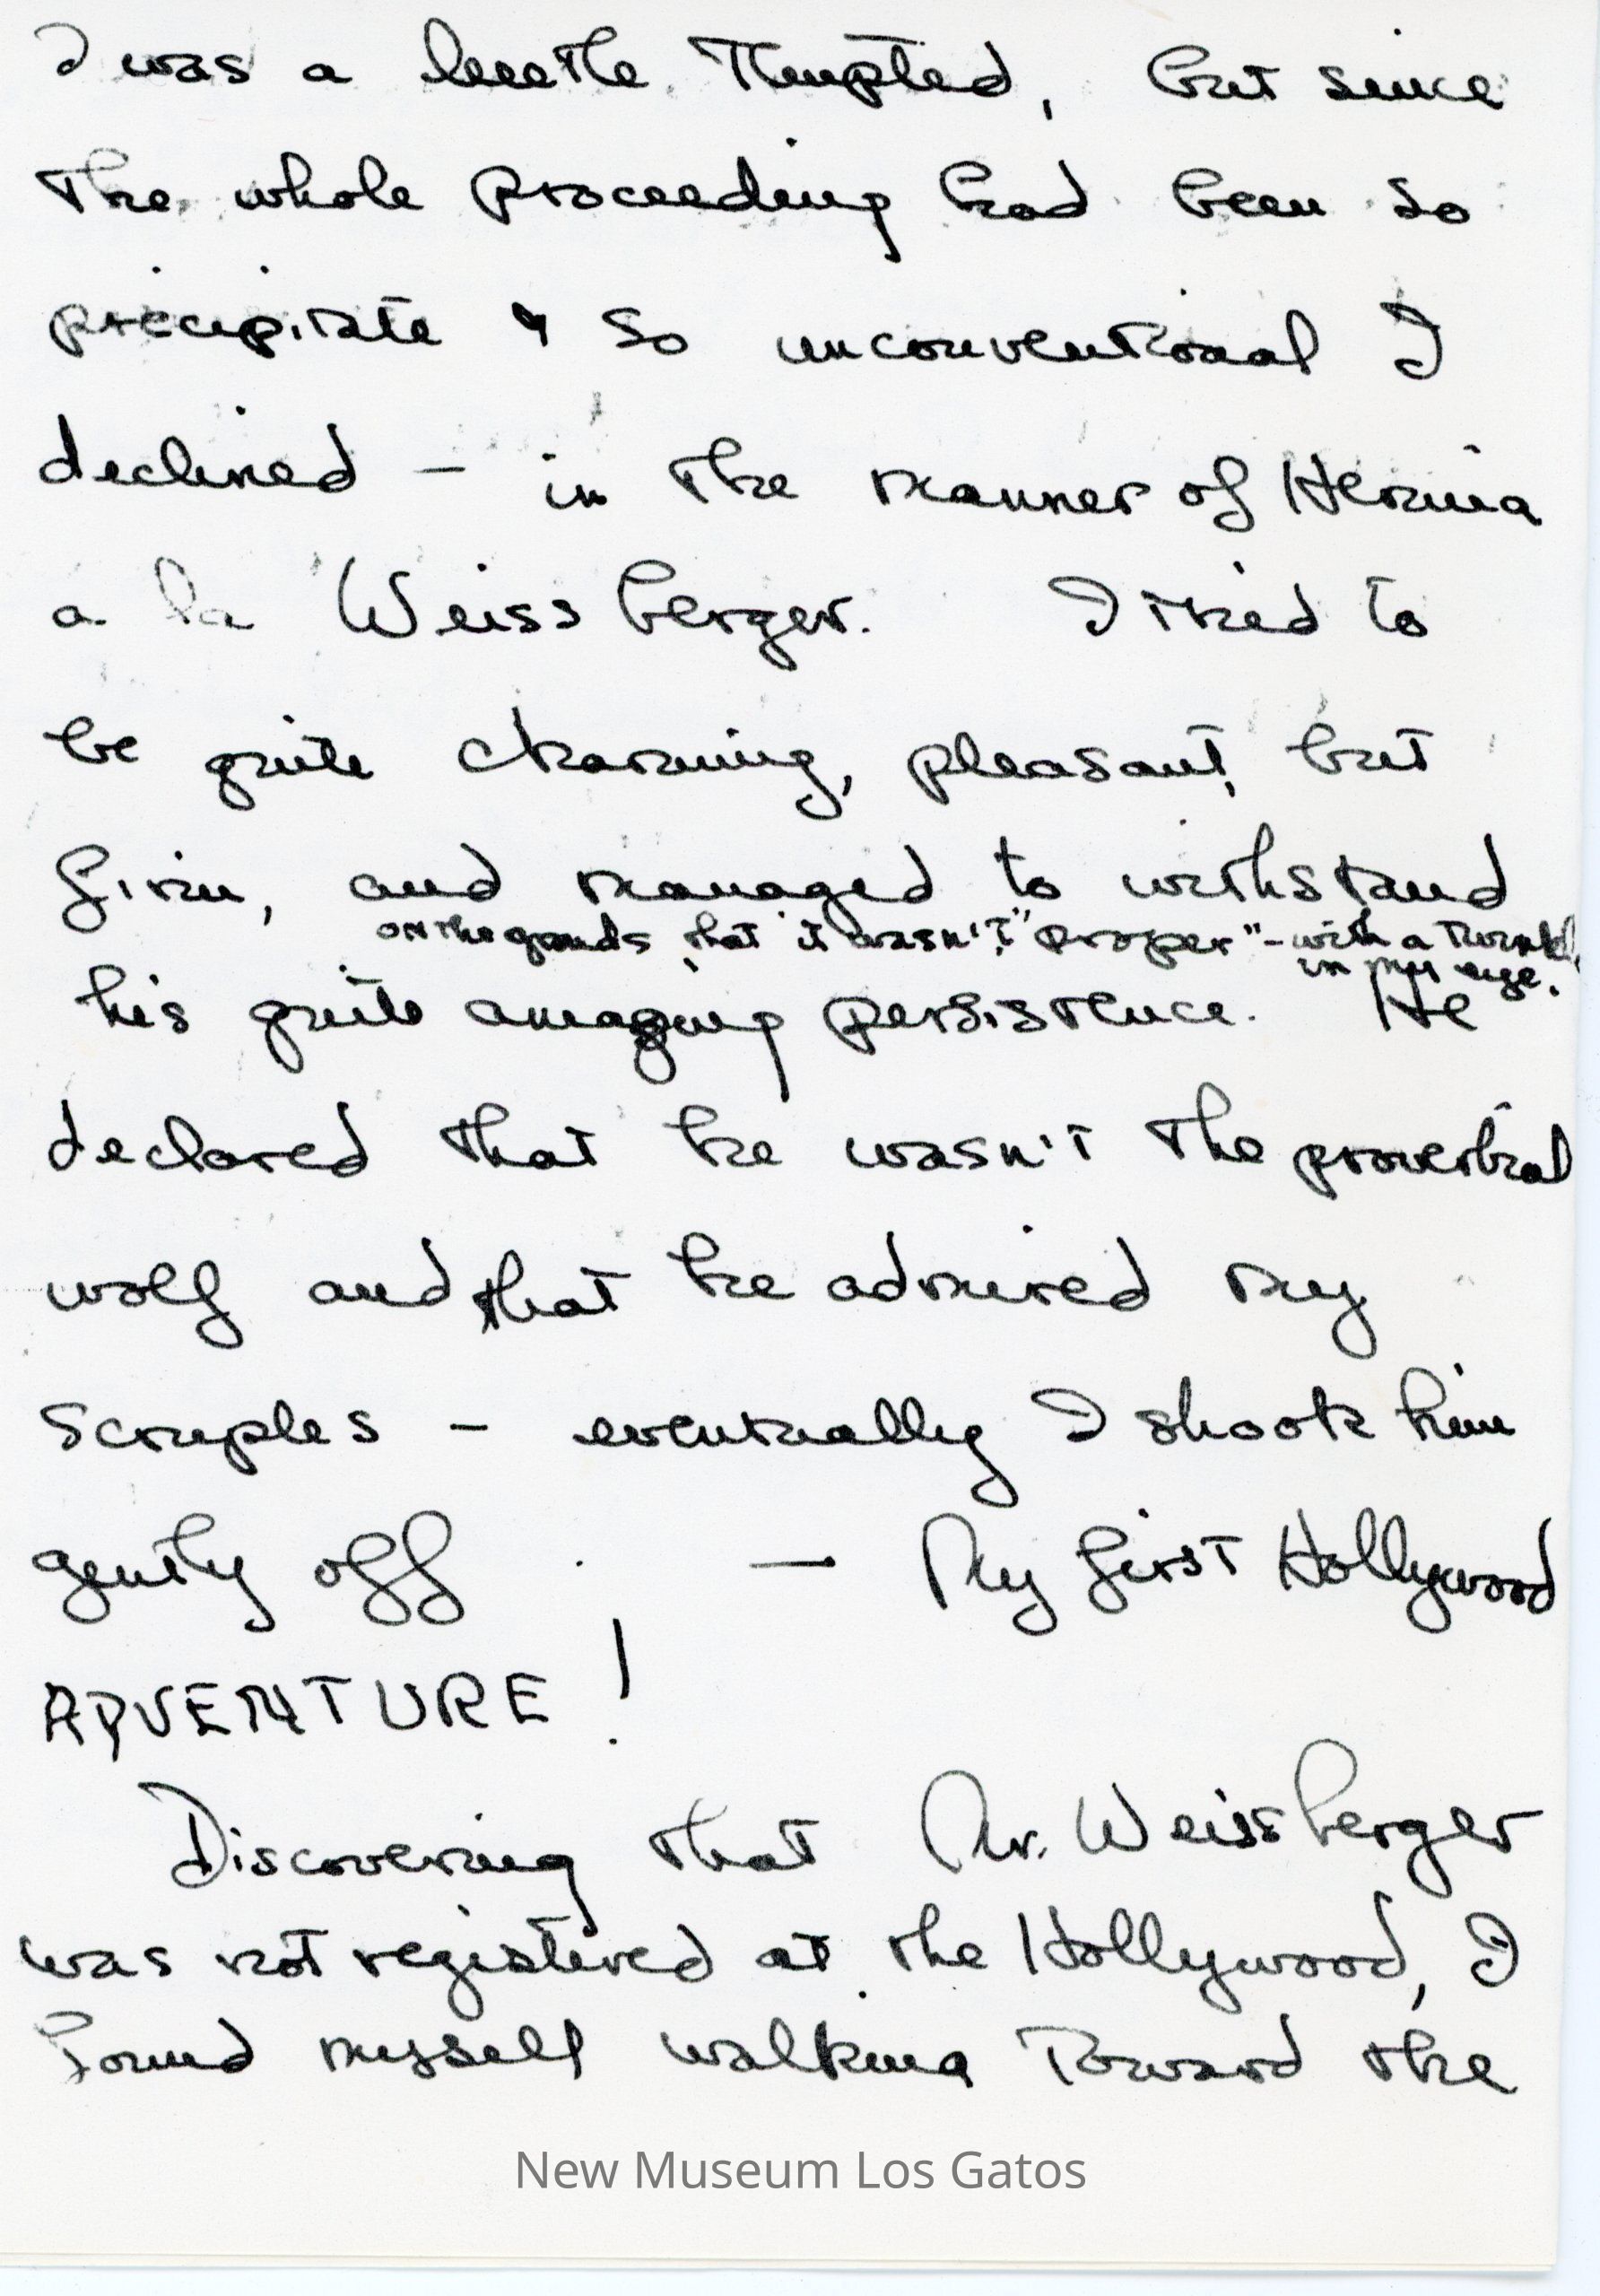 I was a leetle tempted, but since
the whole proceeding had been so
precipitate & so unconventional I
declined – in the manner of Hermia
a la Weissberger. I tried to
be quite charming, pleasant, but
firm, and managed to withstand
on the grounds that it wasn't "proper" – with a twinkle
in my eye.
his quite amazing persistence. He
declared that he wasn't the proverbial
wolf and that he admired my
scruples – eventually I shook him
gently off. — My first Hollywood
ADVENTURE!
Discovering that Mr. Weissberger
was not registered at the Hollywood, I
found myself walking toward the
New Museum Los Gatos